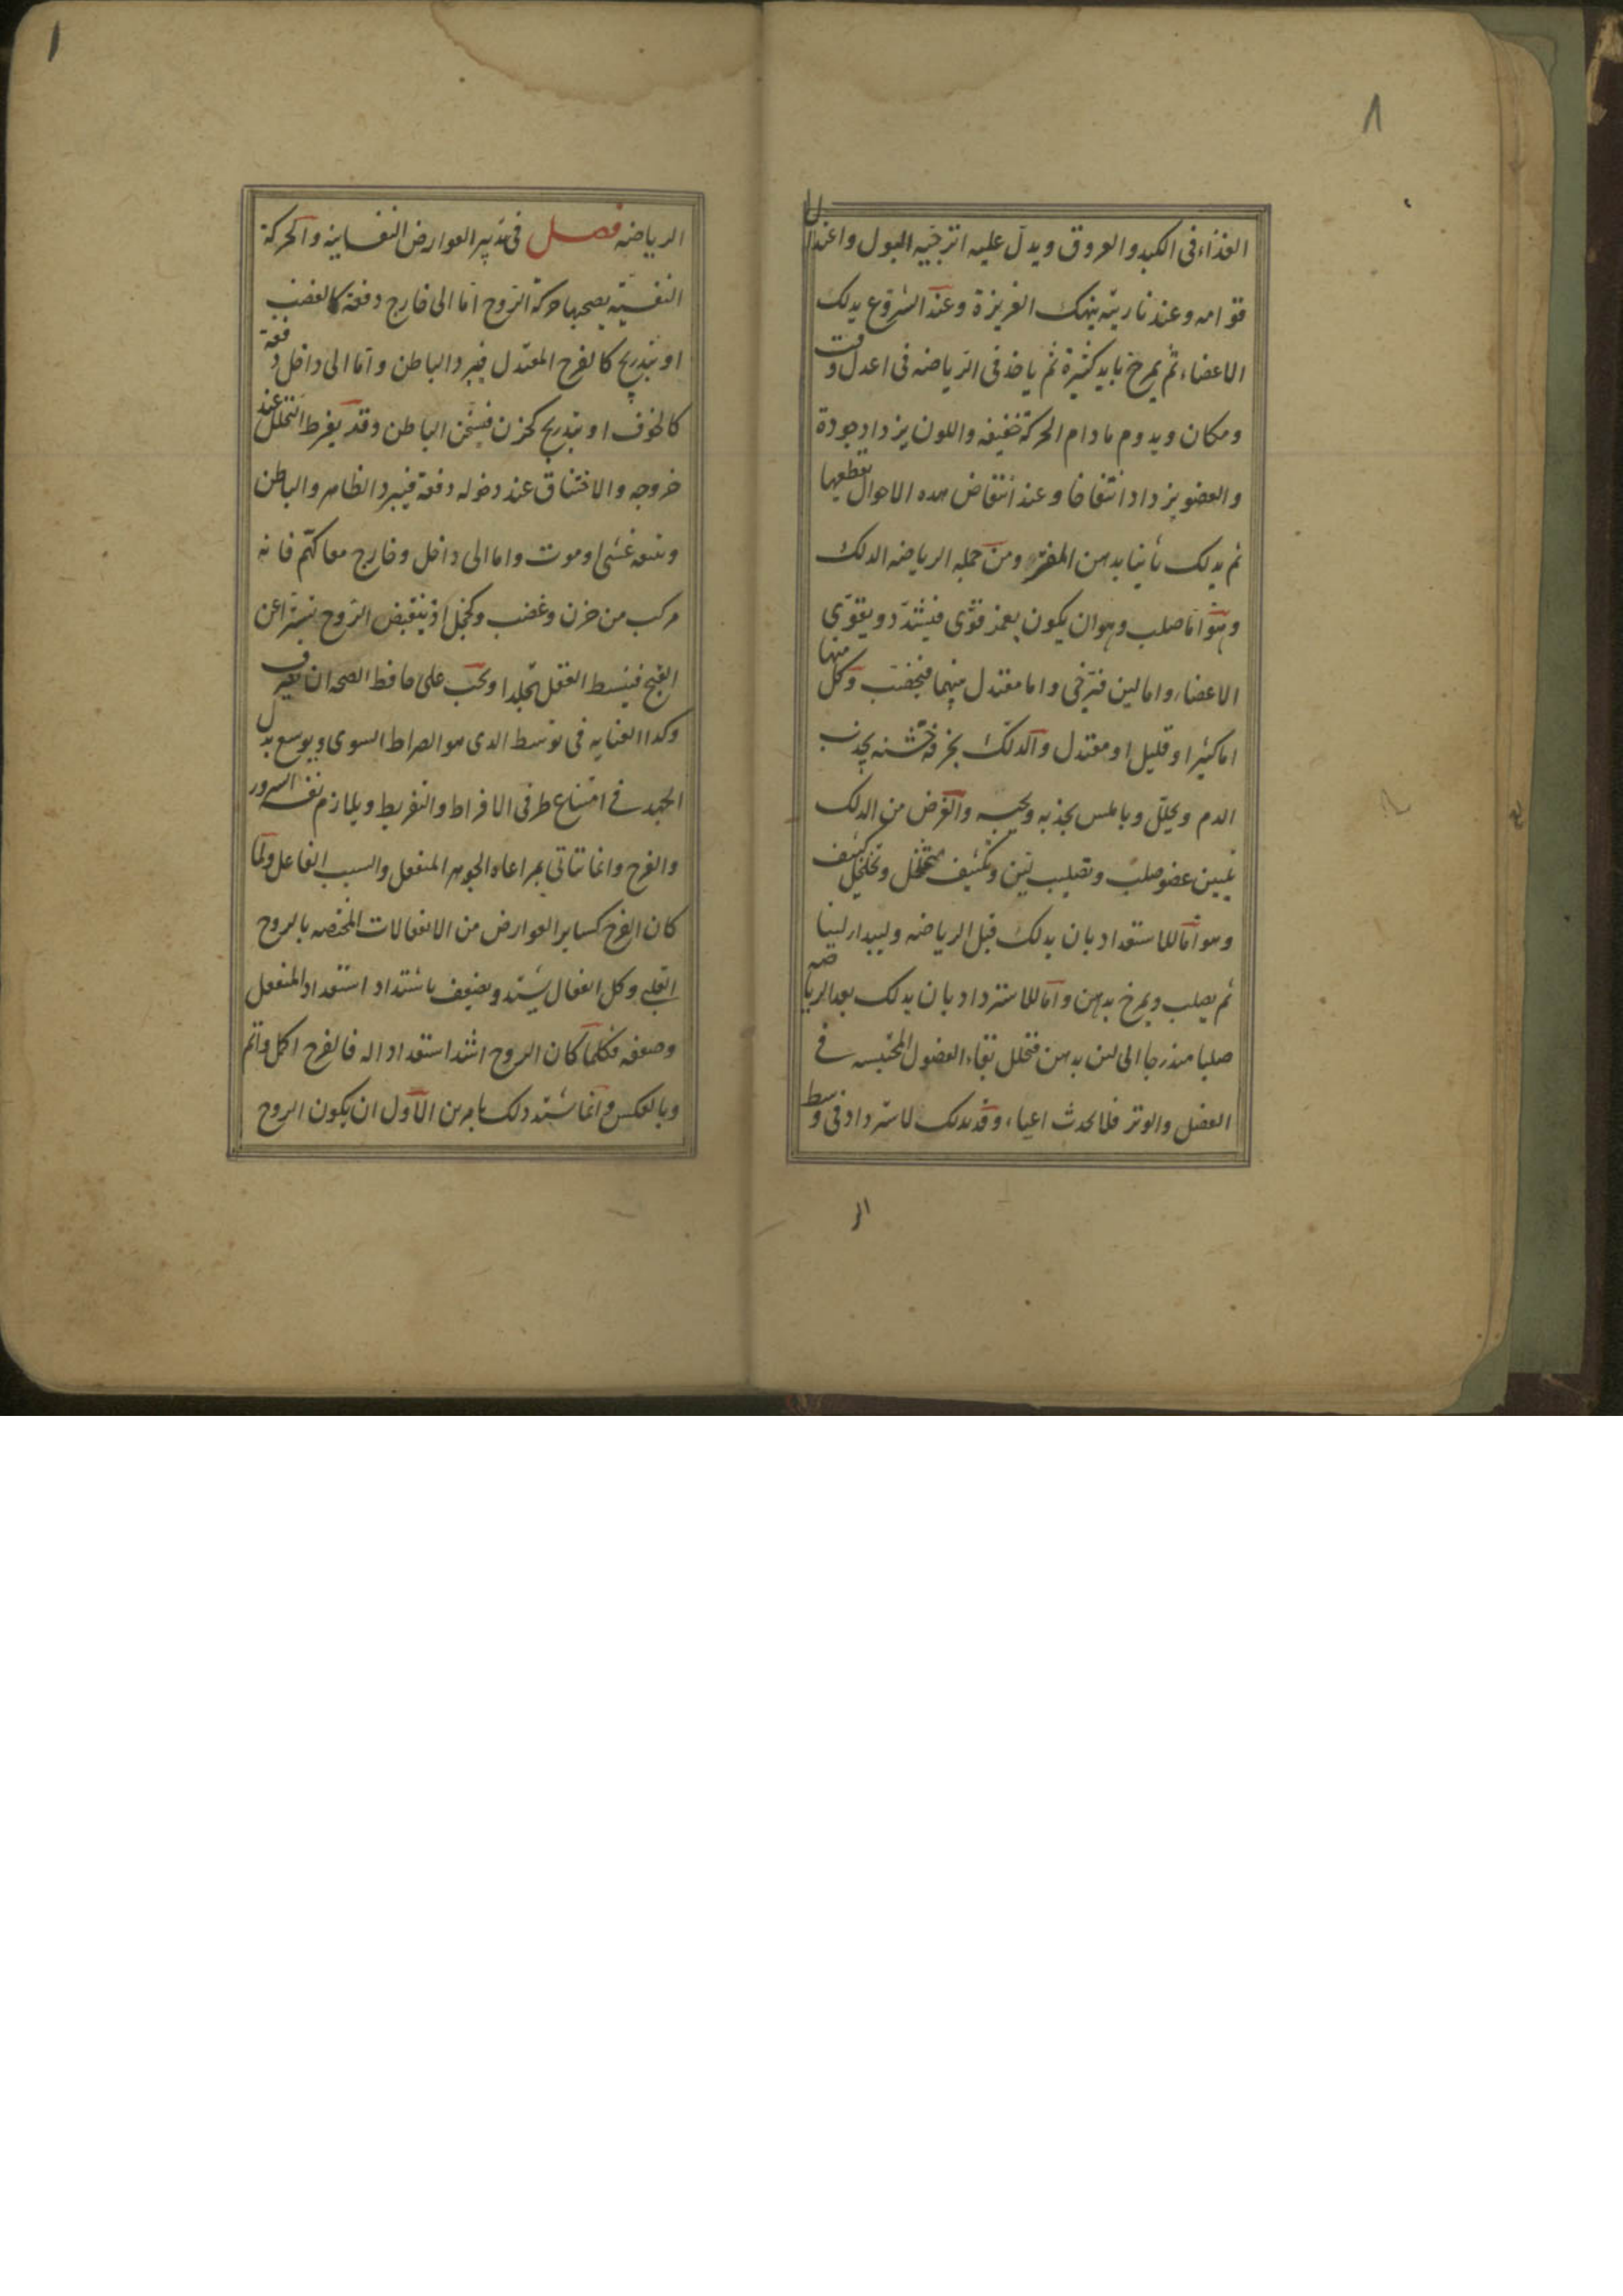 ٨
الغذاء فى الكبد والعروق ويدل عليه اترجّيه البول واعتدال
قوامه وعند ناريته ينهك الغريزة وعند الشروع يدلك
الاعضاء ثم يمرخ بايد كثيرة ثم ياخذ فى الرياضه فى اعدل وقت
ومكان ويدوم مادام الحركة خفيفه واللون يزداد جودة
والعضو يزداد انتفاخا وعند انتقاض هده الاحوال تقطعها
ثم يدلك ثانيا بدهن المفتر ومن جمله الرياضه الدلك
وهو اما صلب وهو ان يكون بغمز قوى فيشدد ويقوى
الاعضاء واما لين فيرخى واما معتدل بينهما فيخصب وكل منها
اما كثيرا وقليل او معتدل والدلك بخرقة خشنه يجذب
الدم ويحلل وباملس يجذبه ويحبسه والغرض من الدلك
تليين عضو صلب وتصليب لين وتكثيف متخلخل وتخلخل كثيف
وهو اما للاستعداد بان يدلك قبل الرياضه وليبدا لينا
ثم يصلب ويمرخ بدهن واما للاسترداد بان يدلك بعد الرياضه
صلبا متدرجا الى لين بدهن فتحلل بقاء الفضول المحتبسه فى
العضل والوتر فلا يحدث اعياء وقد يدلك لاسترداد فى وسط
الر
الرياضه فصل فى تدبير العوارض النفسانيه والحركة
النفسيّه يصحبها حركة الروح اما الى خارج دفعة كالغضب
او بتدريج كالفرح المعتدل فيبرد الباطن واما الى داخل دفعة
كالخوف او بتدريج كحزن فيسخن الباطن وقد يفرط التحلل عند
خروجه والاختناق عند دخوله دفعة فيبرد الظاهر والباطن
ويتبعه غشى او موت واما الى داخل وخارج معا كهم فانه
مركب من حزن وغضب وكخجل اذ ينقبض الروح تستراعن
القبح فينبسط العقل تجلدا ويجب على حافظ الصحه ان يصرف
وكدا العنايه فى توسط الدى هو الصراط السوى ويوسع بذل
الجهد فى امتناع طرفى الافراط والتفريط ويلازم نفسه السرور
والفرح وانما تتاتى بمراعاه الجوهر المنفعل والسبب الفاعل ولما
كان الفرح كساير العوارض من الانفعالات المختصه بالروح
القلبى وكل انفعال يشتد ويضعف باشتداد استعداد المنفعل
وضعفه فكلما كان الروح اشد استعدادا له فالفرح اكمل واتم
وبالعكس وانما يشتد دلك بامرين الاول ان يكون الروح